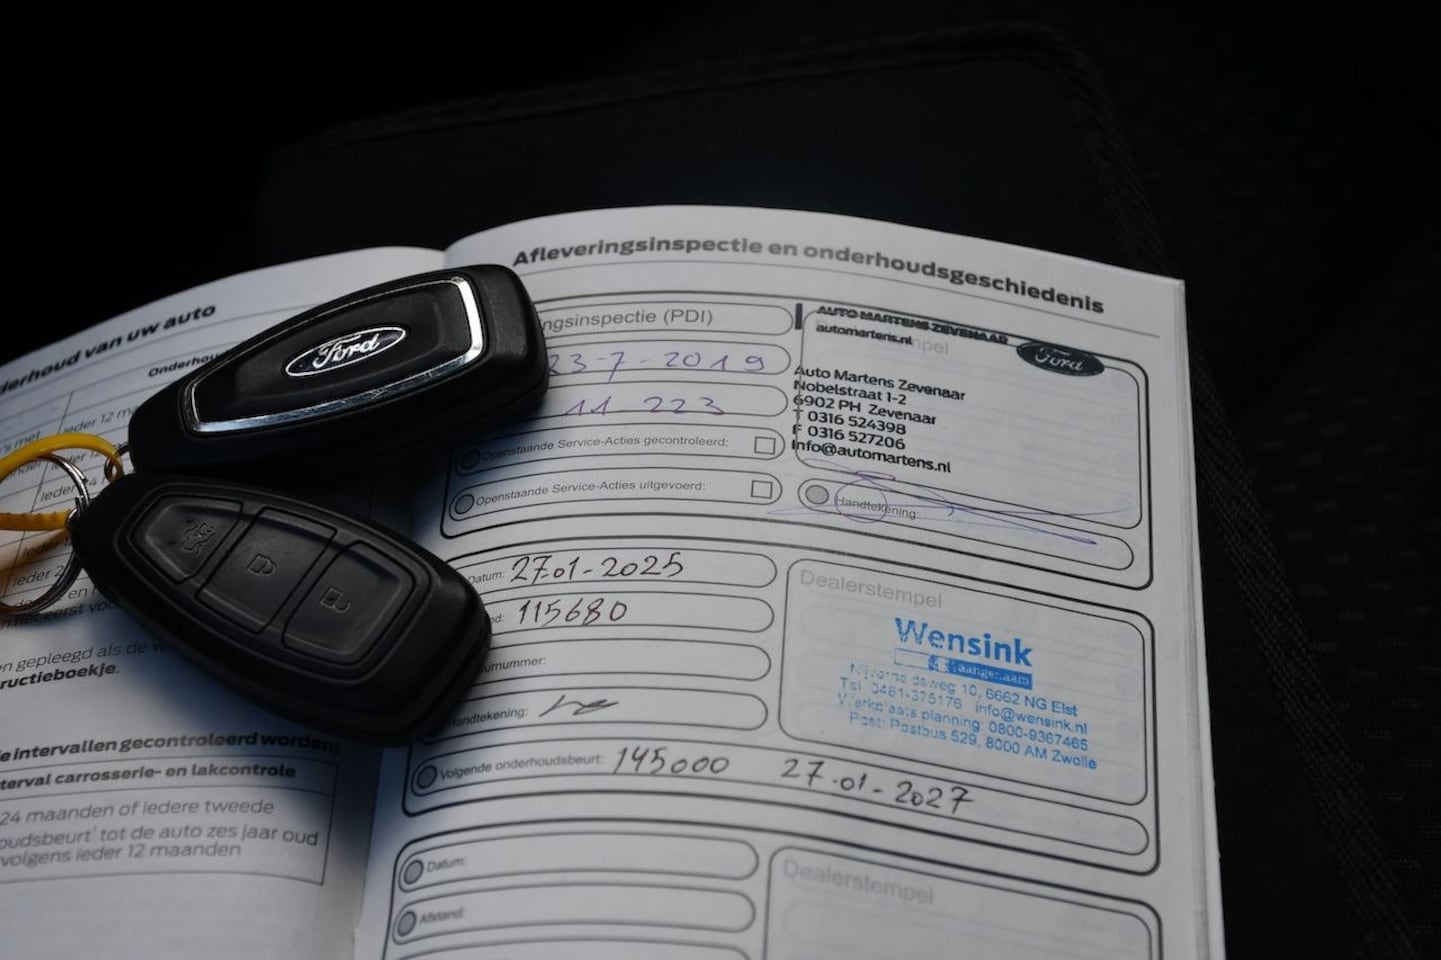 derhoud van uw auto
Onderhou
ieder 12 ma
's met
ieder 2
en gepleegd als de w
ructieboekje.
e intervallen gecontroleerd worden:
terval carrosserie- en lakcontrole
24 maanden of iedere tweede
oudsbeurt' tot de auto zes jaar oud
volgens ieder 12 maanden
Ford
Afleveringsinspectie en onderhoudsgeschiedenis
ngsinspectie (PDI)
23-7-2019
11 223
Openstaande Service-Acties gecontroleerd:
Openstaande Service-Acties uitgevoerd:
AUTO MARTENS ZEVENAAR
automartens.nl
Ford
Auto Martens Zevenaar
Nobelstraat 1-2
6902 PH Zevenaar
T 0316 524398
F 0316 527206
Info@automartens.nl
Handtekening:
Datum: 27-01-2025
nd: 115680
urnummer:
Handtekening:
Volgende onderhoudsbeurt: 145000 27-01-2027
Dealerstempel
Wensink
10, 6662 NG Elst
Tel. 0481-375176 info@wensink.nl
Werkplaats planning: 0800-9367465
Post: Postbus 529, 8000 AM Zwolle
Datum:
Afstand:
Dealerstempel